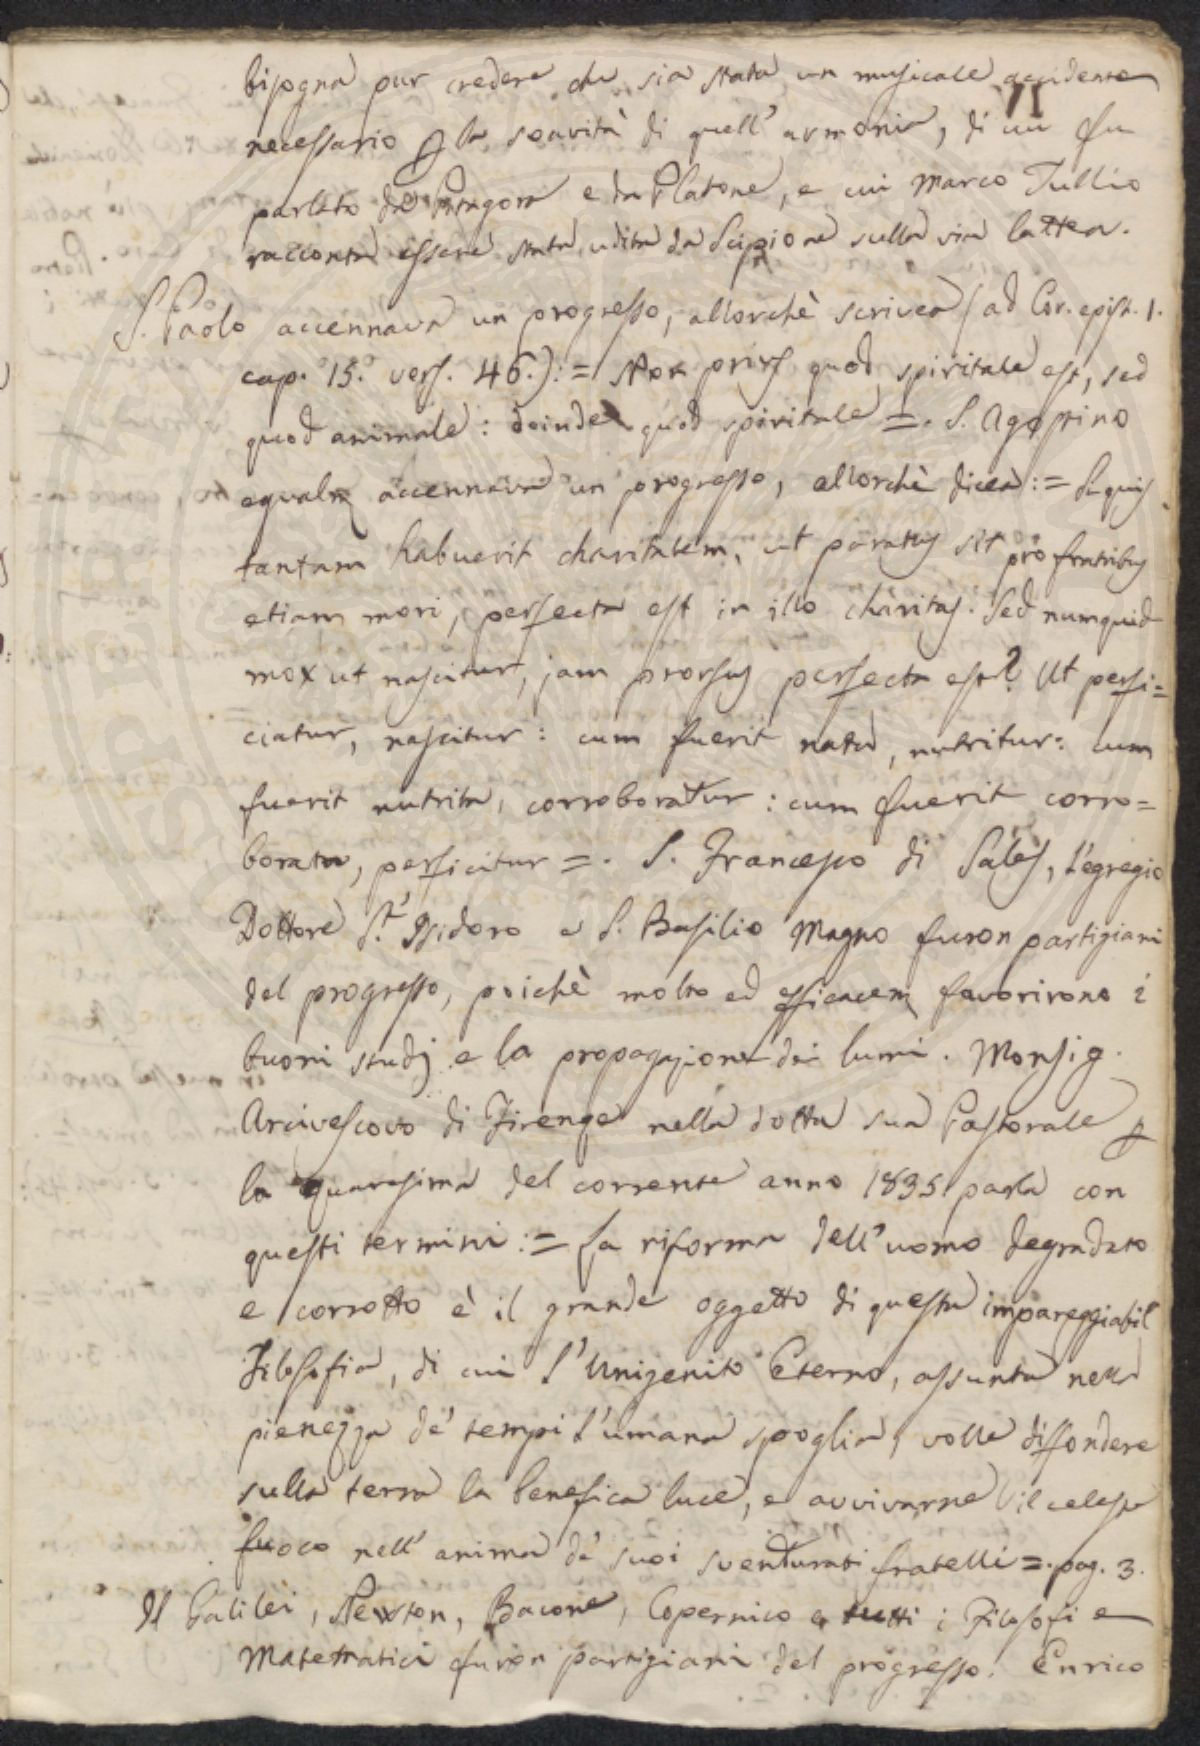 bisogna pur credere che sia stata un musicale accidente
VI
necessario p la soavità di quell' armonia, di cui fu
parlato da Pitagora e da Platone, e cui Marco Tullio
racconta essere stata udita da Scipione sulla via lattea.
S. Paolo accennava un progresso, allorchè scrivea (ad Cor. epist. 1.
cap. 15. vers. 46.): = Non prius quod spiritale est, sed
quod animale: deinde quod spiritale =. S. Agostino
egualm accennava un progresso, allorchè dicea: = Si quis
tantam habuerit charitatem, ut paratus sit pro fratribus
etiam mori, perfecta est in illo charitas. Sed numquid
mox ut nascitur, jam prorsus perfecta est? Ut perfi=
ciatur, nascitur: cum fuerit nata, nutritur: cum
fuerit nutrita, corroboratur: cum fuerit corro=
borata, perficitur =. S. Francesco di Sales, l'egregio
Dottore S.t' Isidoro e S. Basilio Magno furon partigiani
del progresso, poichè molto ed efficacem favorirono i
buoni studj e la propagazione dei lumi. Monsig.
Arcivescovo di Firenze nella dotta sua Pastorale p
la quaresima del corrente anno 1835 parla con
questi termini: = La riforma dell'uomo degradato
e corrotto è il grande oggetto di questa impareggiabil
Filosofia, di cui l'Unigenito Eterno, assunta nella
pienezza de' tempi l'umana spoglia, volle diffondere
sulla terra la benefica luce, e avvivarne il celeste
fuoco nell' anima de' suoi sventurati fratelli =. pag. 3.
Il Galilei, Newton, Bacone, Copernico e tutti i Filosofi e
Matematici furon partigiani del progresso. Enrico